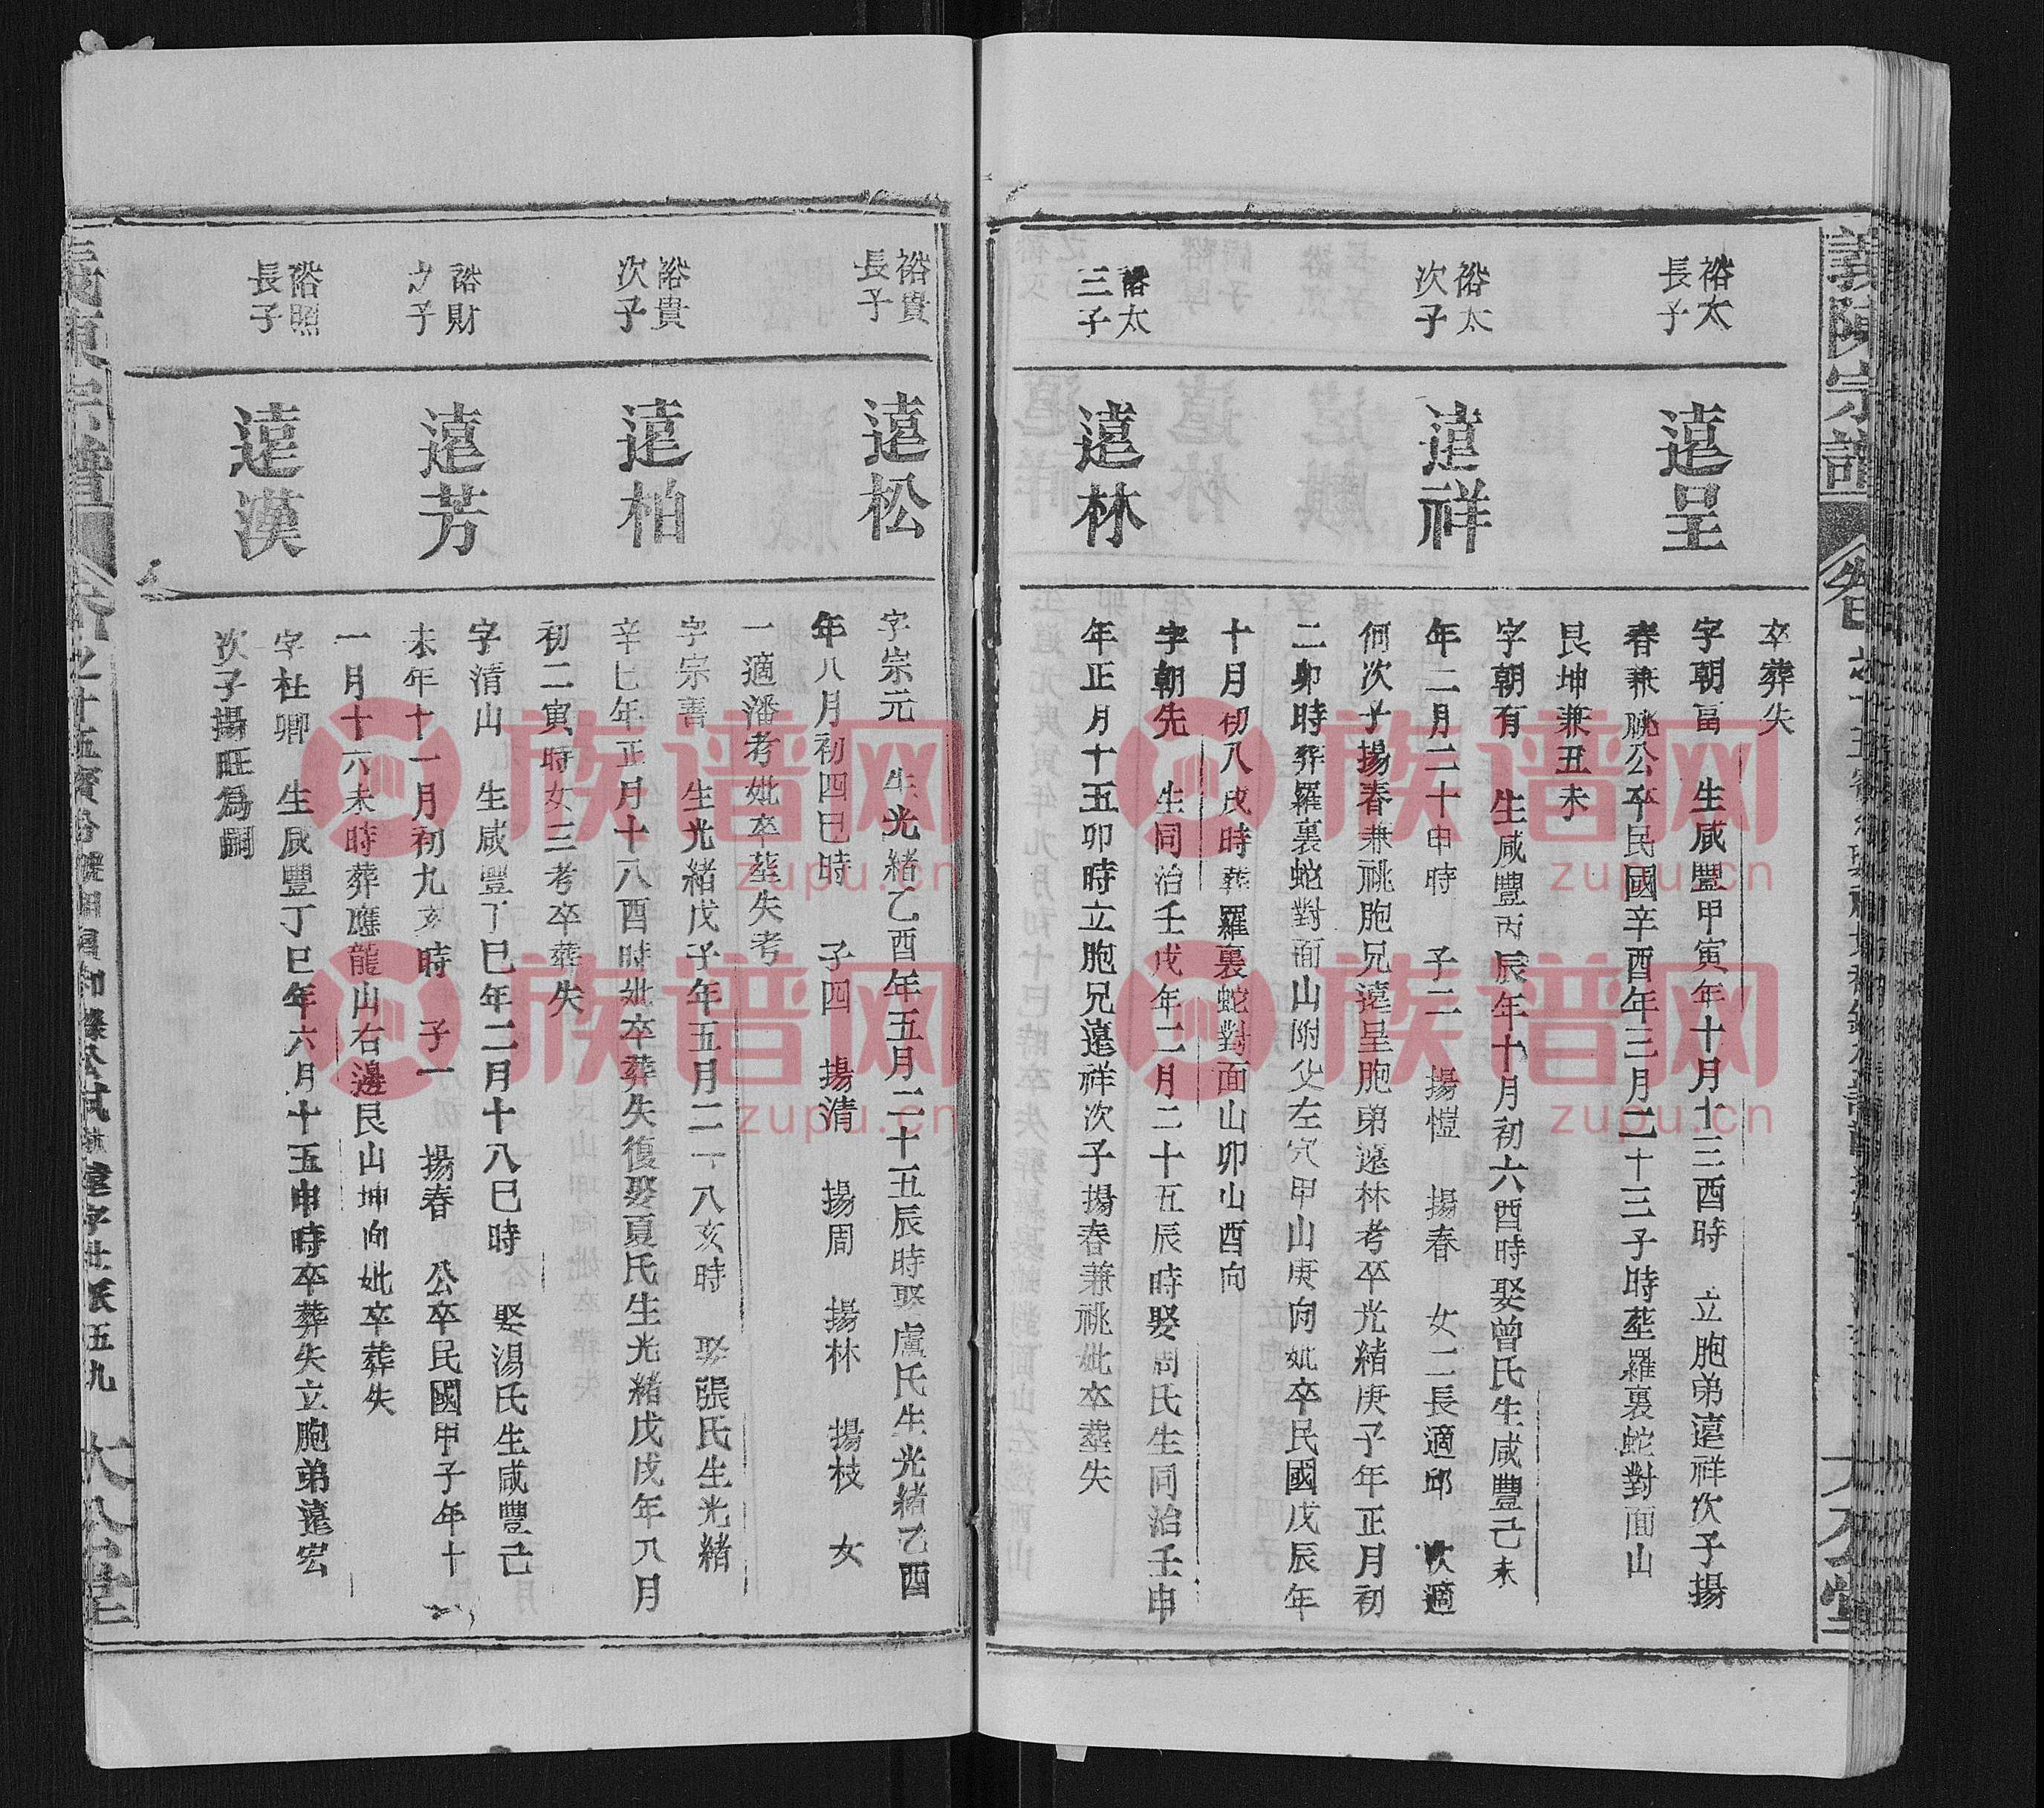 義陳宗譜
卒葬失
裕太
長子
遠呈
字朝富 生咸豐甲寅年十月十三酉時 立胞弟遠祥次子揚
春兼祧公卒民國辛酉年三月二十三子時葬羅裏蛇對面山
艮坤兼丑未
裕太
次子
遠祥
字朝有 生咸豐丙辰年十月初六酉時娶曾氏生咸豐己未
年二月二十申時 子二 揚愷 揚春 女二長適邱 次適
何次子揚春兼祧胞兄遠呈胞弟遠林考卒光緒庚子年正月初
二卯時葬羅裏蛇對面山附父左穴甲山庚向妣卒民國戊辰年
十月初八戌時葬羅裏蛇對面山卯山酉向
裕太
三子
遠林
字朝先 生同治壬戌年二月二十五辰時娶周氏生同治壬申
年正月十五卯時立胞兄遠祥次子揚春兼祧妣卒葬失
裕貴
長子
遠松
字宗元 生光緒乙酉年五月二十五辰時娶盧氏生光緒乙酉
年八月初四巳時 子四 揚清 揚周 揚林 揚枝 女
一適潘考妣卒葬失考
裕貴
次子
遠柏
字宗善 生光緒戊子年五月二十八亥時 娶張氏生光緒
辛巳年正月十八酉時妣卒葬失復娶夏氏生光緒戊戌年八月
初二寅時女三考卒葬失
裕財
子
遠芳
字清山 生咸豐丁巳年二月十八巳時 娶湯氏生咸豐己
未年十一月初九亥時 子一 揚春 公卒民國甲子年十
一月十六未時葬應龍山右邊艮山坤向妣卒葬失
裕照
長子
遠漢
字杜卿 生咸豐丁巳年六月十五申時卒葬失立胞弟遠宏
次子揚旺爲嗣
世派五九
大公堂
族谱网
zupu.cn
族谱网
zupu.cn
族谱网
zupu.cn
族谱网
zupu.cn